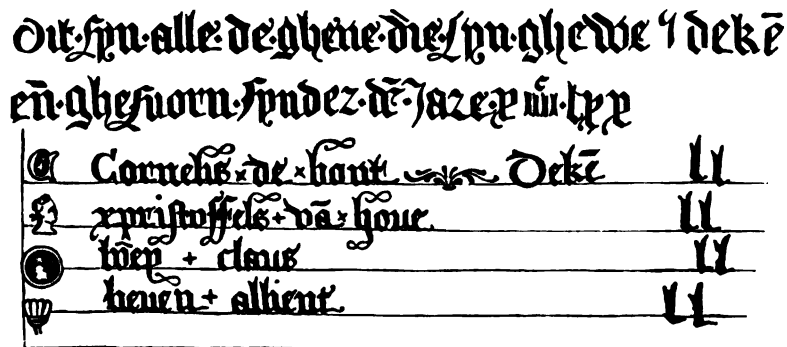 Dit·syn·alle·de·ghene·die·syn·ghewe dekē
eñ·ghesuorn·synder·Jare·x iiiiᶜ·lxx
Cornelis × de × hont Dekē ll
xpristoffels + vā × houe ll
+ claus ll
+ albient ll